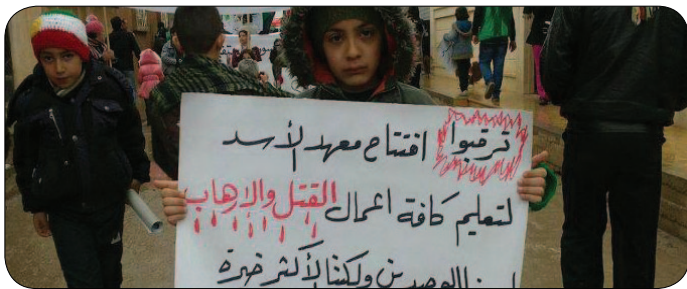 ترقبوا افتتاح معهد الأسد
لتعليم كافة اعمال القتل والارهاب
لسنا الوحيدين ولكننا الأكثر خبرة